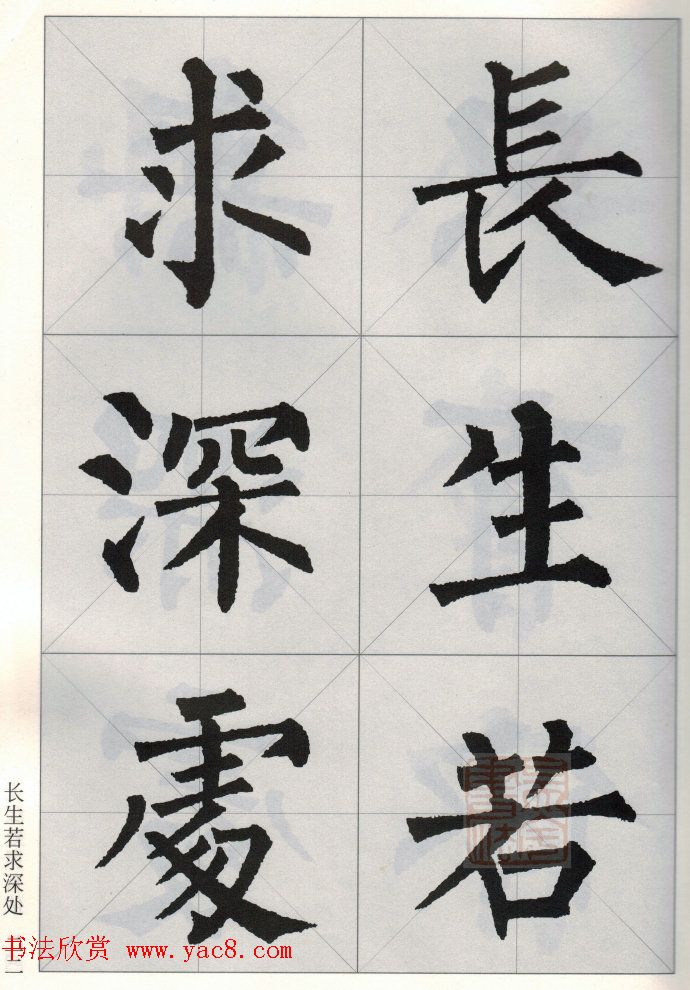 長生若
求深處
长生若求深处
书法欣赏 www.yac8.com